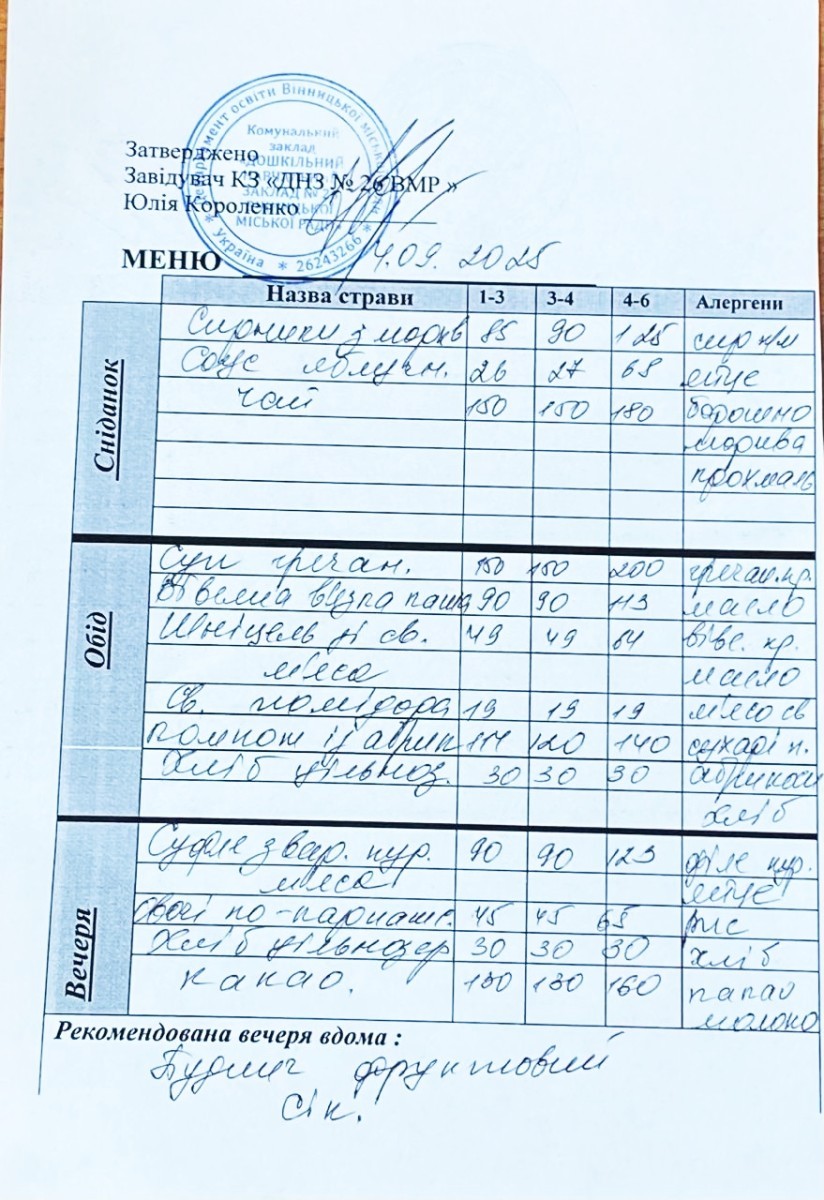 Департамент освіти Вінницької міської
Комунальний
заклад
«ДОШКІЛЬНИЙ
ЗАКЛАД № 26
МІСЬКОЇ РАДИ»
* Україна * 26243266 *
Затверджено
Завідувач КЗ «ДНЗ № 26 ВМР »
Юлія Короленко
МЕНЮ 4.09. 2025
Назва страви 1-3 3-4 4-6 Алергени
Сніданок
Сирники з моркв 85 90 125 сир к/м
Соус яблучн. 26 27 68 яйце
чай 150 150 180 борошно
морква
крохмаль
Обід
Суп гречан. 150 150 200 гречан.кр.
Вівсяна в'язка каша 90 90 113 масло
Шніцель зі св. 49 49 64 вівс. кр.
м'яса масло
Св. помідора 19 19 19 м'ясо св
компот із абрик 114 120 140 сухарі п.
Хліб цільноз. 30 30 30 абрикоси
хліб
Вечеря
Суфле з вар. кур. 90 90 123 філе кур.
м'яса яйце
овочі по- 45 45 65 рис
Хліб цільнозер 30 30 30 хліб
какао. 130 130 160 какао
молоко
Рекомендована вечеря вдома :
Пудинг фруктовий
Сік.